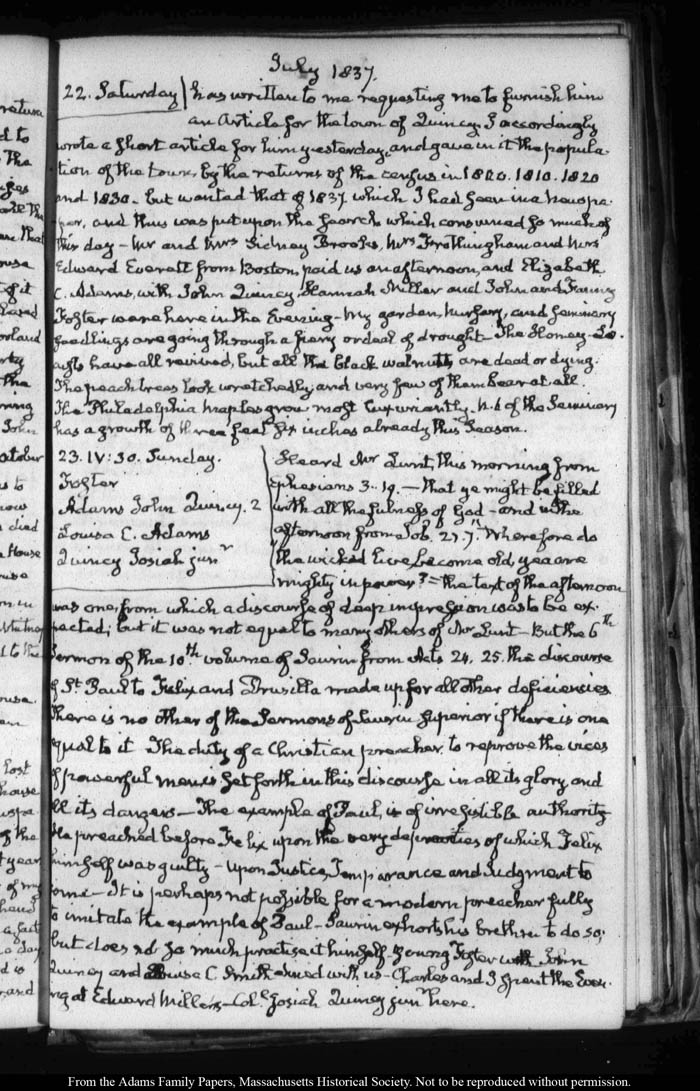 July 1837.
22. Saturday has written to me requesting me to furnish him
an Article for the town of Quincy. I accordingly
wrote a short article for him yesterday, and gave in it the popula-
tion of the town, by the returns of the census in 1800. 1810. 1820
and 1830. but wanted that of 1837 which I had seen in a newspa-
per, and thus was put upon the search which consumed so much of
this day – Mr and Mrs Sidney Brooks, Mrs Frothingham and Mrs
Edward Everett from Boston, paid us an afternoon, and Elizabeth
C. Adams, with John Quincy, Hannah Miller and John and Fanny
Foster were here in the Evening – My garden, nursery, and Seminary
seedlings are going through a fiery ordeal of drought – The Honey Lo-
custs have all revived, but all the black walnuts are dead or dying.
The peach trees look wretchedly, and very few of them bear at all.
The Philadelphia maples grow most luxuriantly. N. 6 of the Seminary
has a growth of three feet six inches already this Season.
23. IV: 30. Sunday.
Foster
Adams John Quincy. 2
Louisa C. Adams
Quincy Josiah junr
Heard Mr Lunt, this morning from
Ephesians 3. 19. – That ye might be filled
with all the fulness of God – and in the
afternoon from Job. 21. 7. "Wherefore do
the wicked live, become old, yea are
mighty in power? = the text of the afternoon
was one, from which a discourse of deep impression was to be ex-
pected; but it was not equal to many others of Mr Lunt – But the 6th
Sermon of the 10th volume of Saurin from Acts 24. 25. the discourse
of St Paul to Felix and Drusilla made up for all other deficiencies
There is no other of the Sermons of Saurin superior if there is one
equal to it The duty of a Christian preacher, to reprove the vices
of powerful men is set forth in this discourse in all its glory and
all its dangers – The example of Paul, is of irresistible authority
He preached before Felix upon the very depravities of which Felix
himself was guilty – upon Justice, Temperance and Judgment to
come – It is perhaps not possible for a modern preacher fully
to imitate the example of Paul – Saurin exhorts his brethren to do so;
but does not so much practise it himself. Young Foster with John
Quincy and Louisa C. Smith dined with us – Charles and I spent the Even-
ing at Edward Miller's – Col. Josiah Quincy junr here.
From the Adams Family Papers, Massachusetts Historical Society. Not to be reproduced without permission.